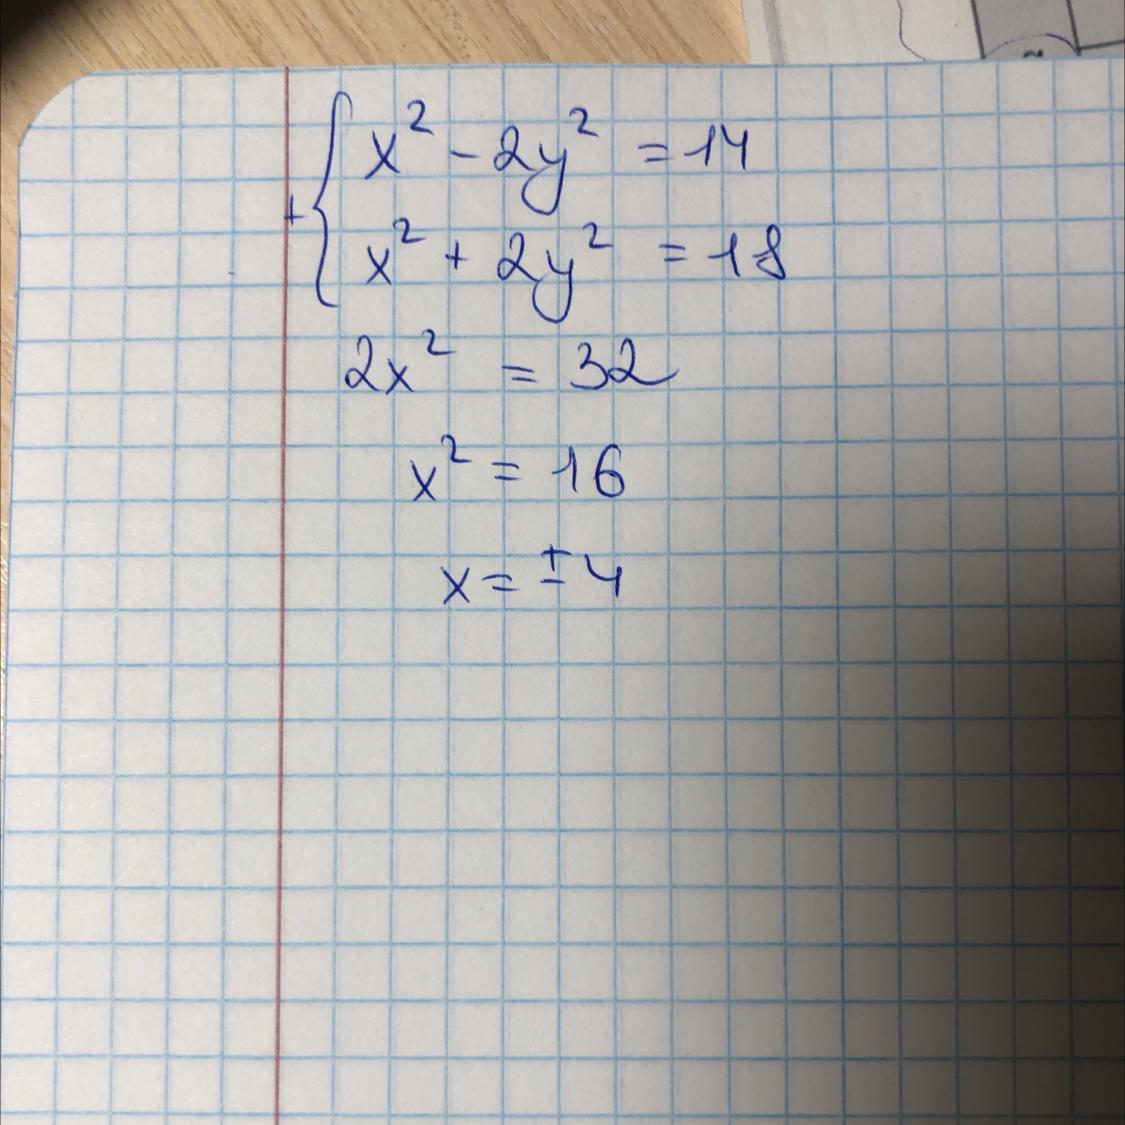 x² - 2y² = 14
+
x² + 2y² = 18
2x² = 32
x² = 16
x = ±4